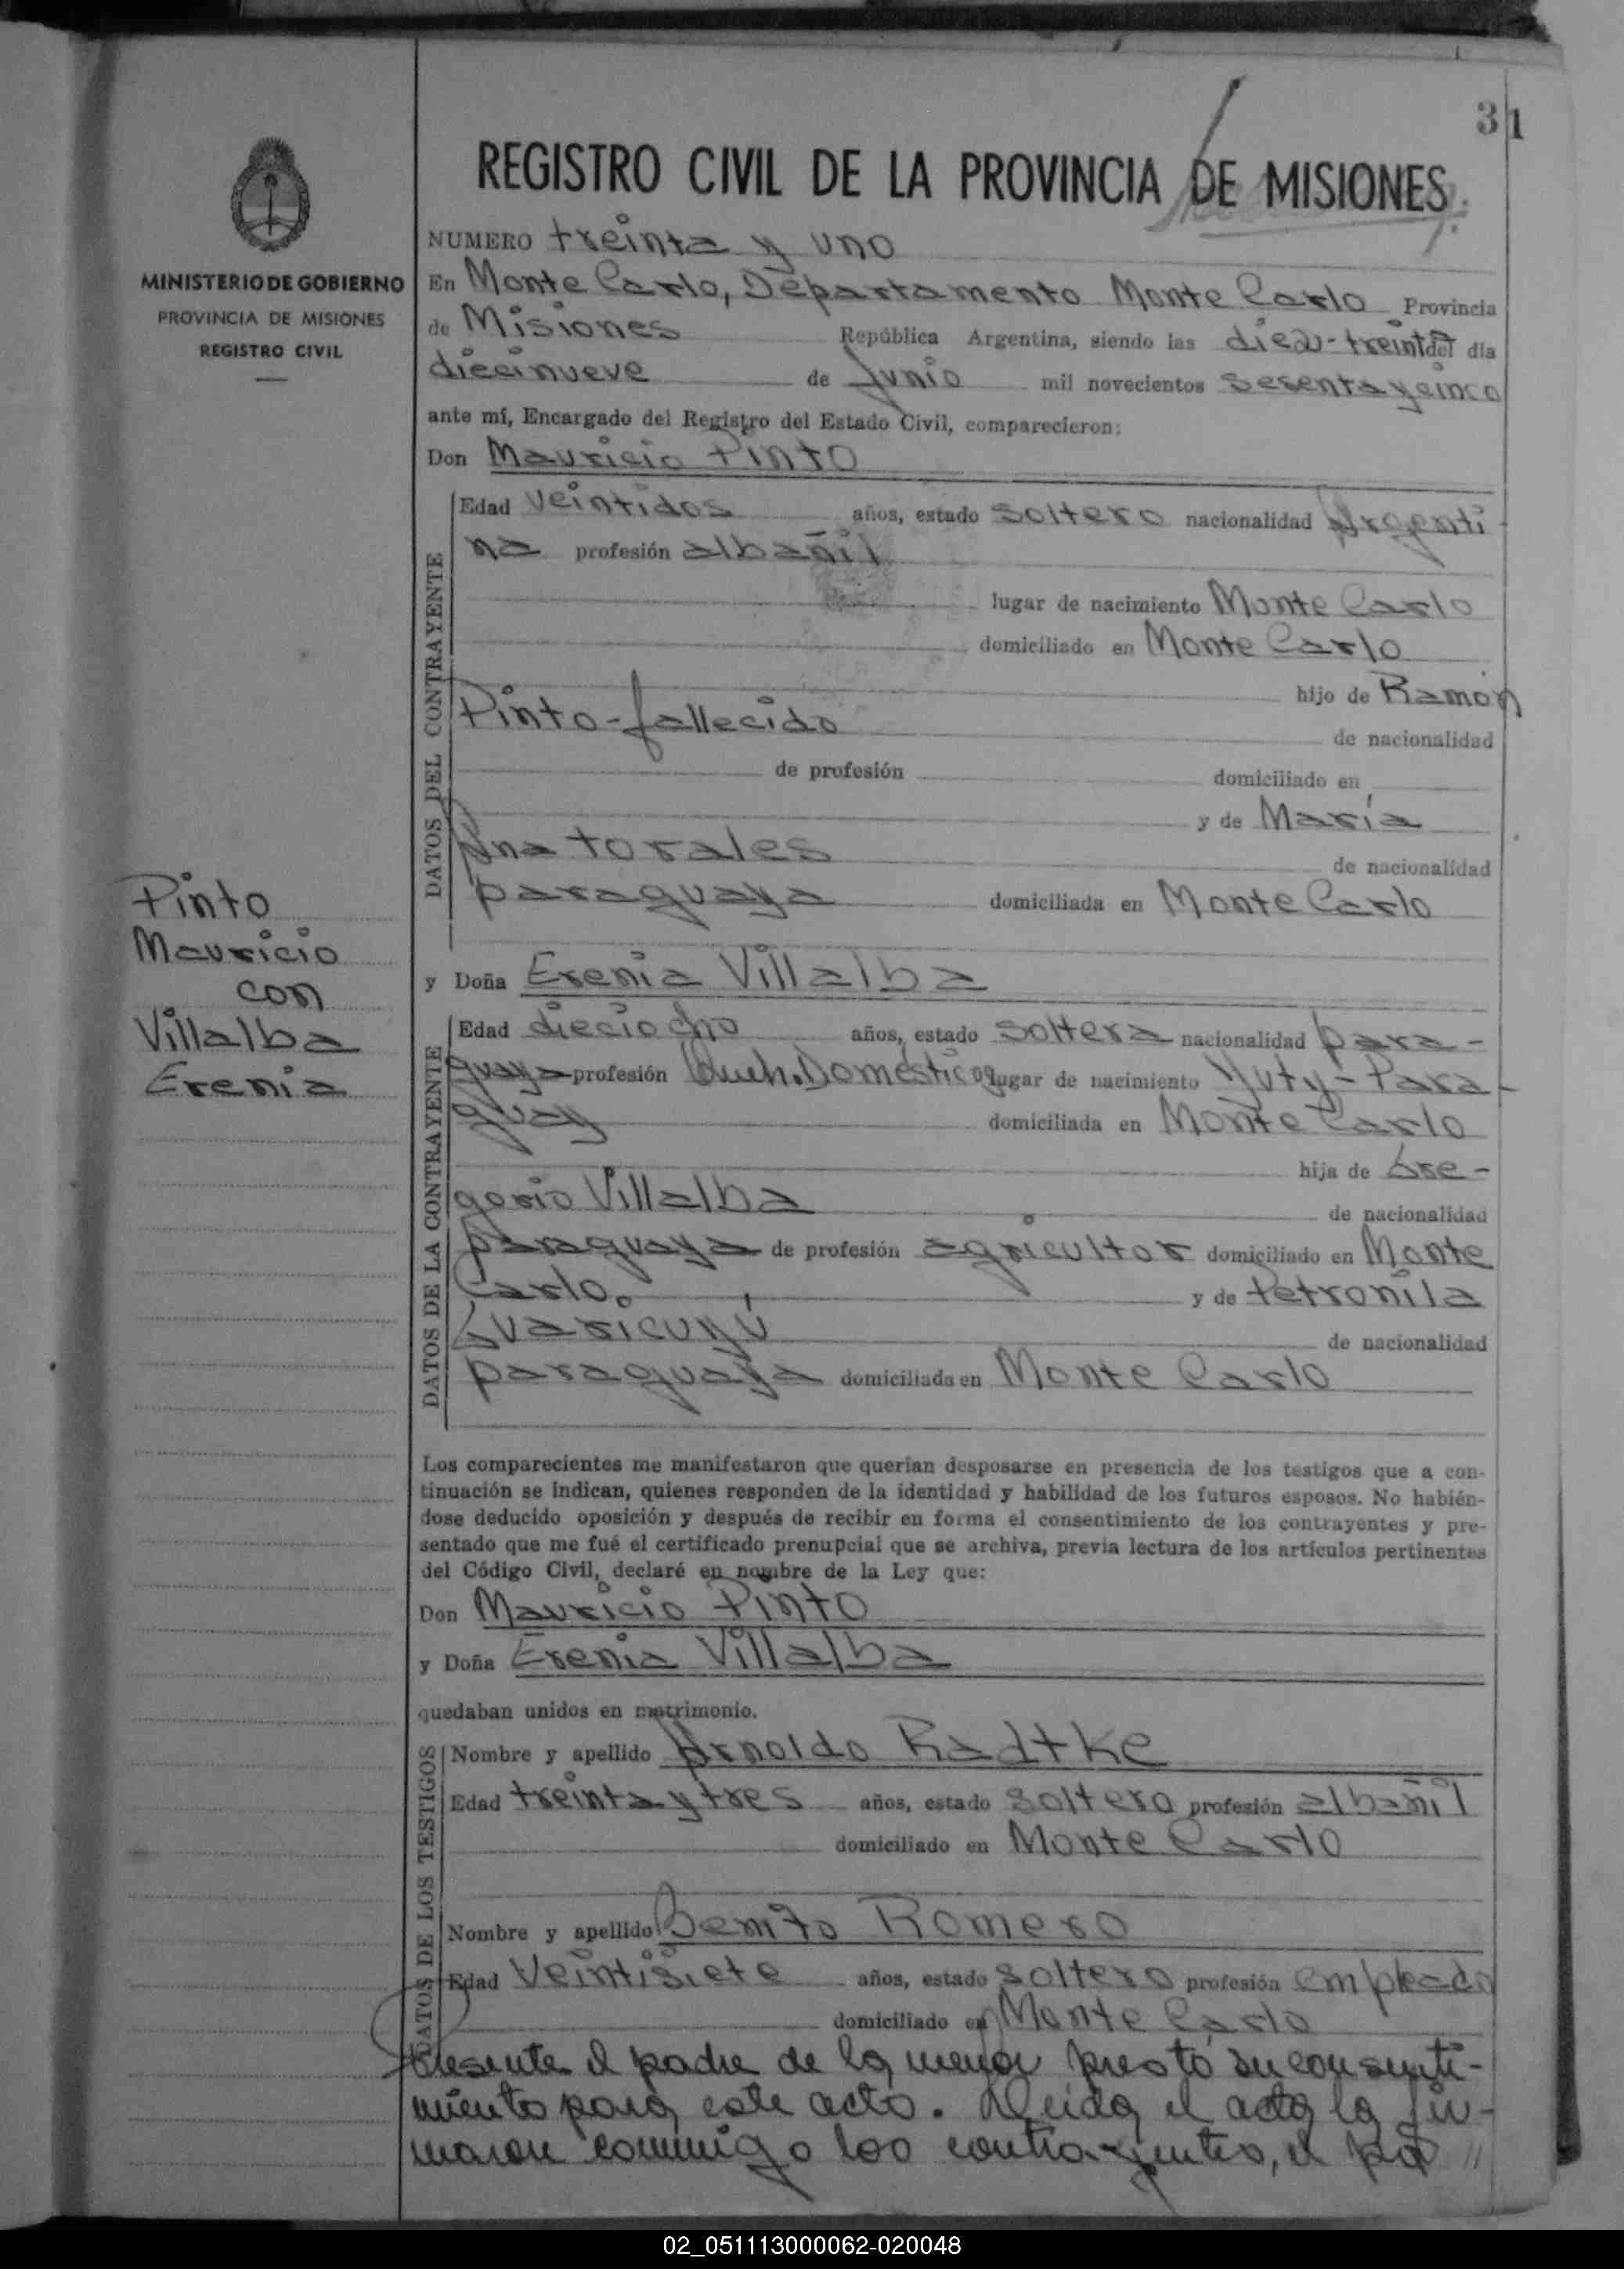 31
REGISTRO CIVIL DE LA PROVINCIA DE MISIONES
MINISTERIO DE GOBIERNO
PROVINCIA DE MISIONES
REGISTRO CIVIL
Pinto
Mauricio
con
Villalba
Erenia
NUMERO treinta y uno
En Monte Carlo, Departamento Monte Carlo Provincia
de Misiones República Argentina, siendo las diez-treinta del día
diecinueve de Junio mil novecientos sesenta y cinco
ante mí, Encargado del Registro del Estado Civil, comparecieron:
Don Mauricio Pinto
DATOS DEL CONTRAYENTE
Edad veintidos años, estado soltero nacionalidad Argenti-
na profesión albañil
lugar de nacimiento Monte Carlo
domiciliado en Monte Carlo
hijo de Ramón
Pinto-fallecido de nacionalidad
de profesión domiciliado en
y de María
Ana torales de nacionalidad
paraguaya domiciliada en Monte Carlo
y Doña Erenia Villalba
DATOS DE LA CONTRAYENTE
Edad dieciocho años, estado soltera nacionalidad para-
guaya profesión Queh. Domésticos lugar de nacimiento Yuty-Para-
guay domiciliada en Monte Carlo
hija de Gre-
gorio Villalba de nacionalidad
paraguaya de profesión agricultor domiciliado en Monte
Carlo. y de Petronila
Guaricuyú de nacionalidad
paraguaya domiciliada en Monte Carlo
Los comparecientes me manifestaron que querían desposarse en presencia de los testigos que a con-
tinuación se indican, quienes responden de la identidad y habilidad de los futuros esposos. No habién-
dose deducido oposición y después de recibir en forma el consentimiento de los contrayentes y pre-
sentado que me fué el certificado prenupcial que se archiva, previa lectura de los artículos pertinentes
del Código Civil, declaré en nombre de la Ley que:
Don Mauricio Pinto
y Doña Erenia Villalba
quedaban unidos en matrimonio.
DATOS DE LOS TESTIGOS
Nombre y apellido Arnoldo Radtke
Edad treinta y tres años, estado soltero profesión albañil
domiciliado en Monte Carlo
Nombre y apellido Benito Romero
Edad veintisiete años, estado soltero profesión empleado
domiciliado en Monte Carlo
Presente el padre de la menor prestó su consenti-
miento para este acto. Leída el acta la fir-
maron conmigo los contrayentes, el pa //
02_051113000062-020048